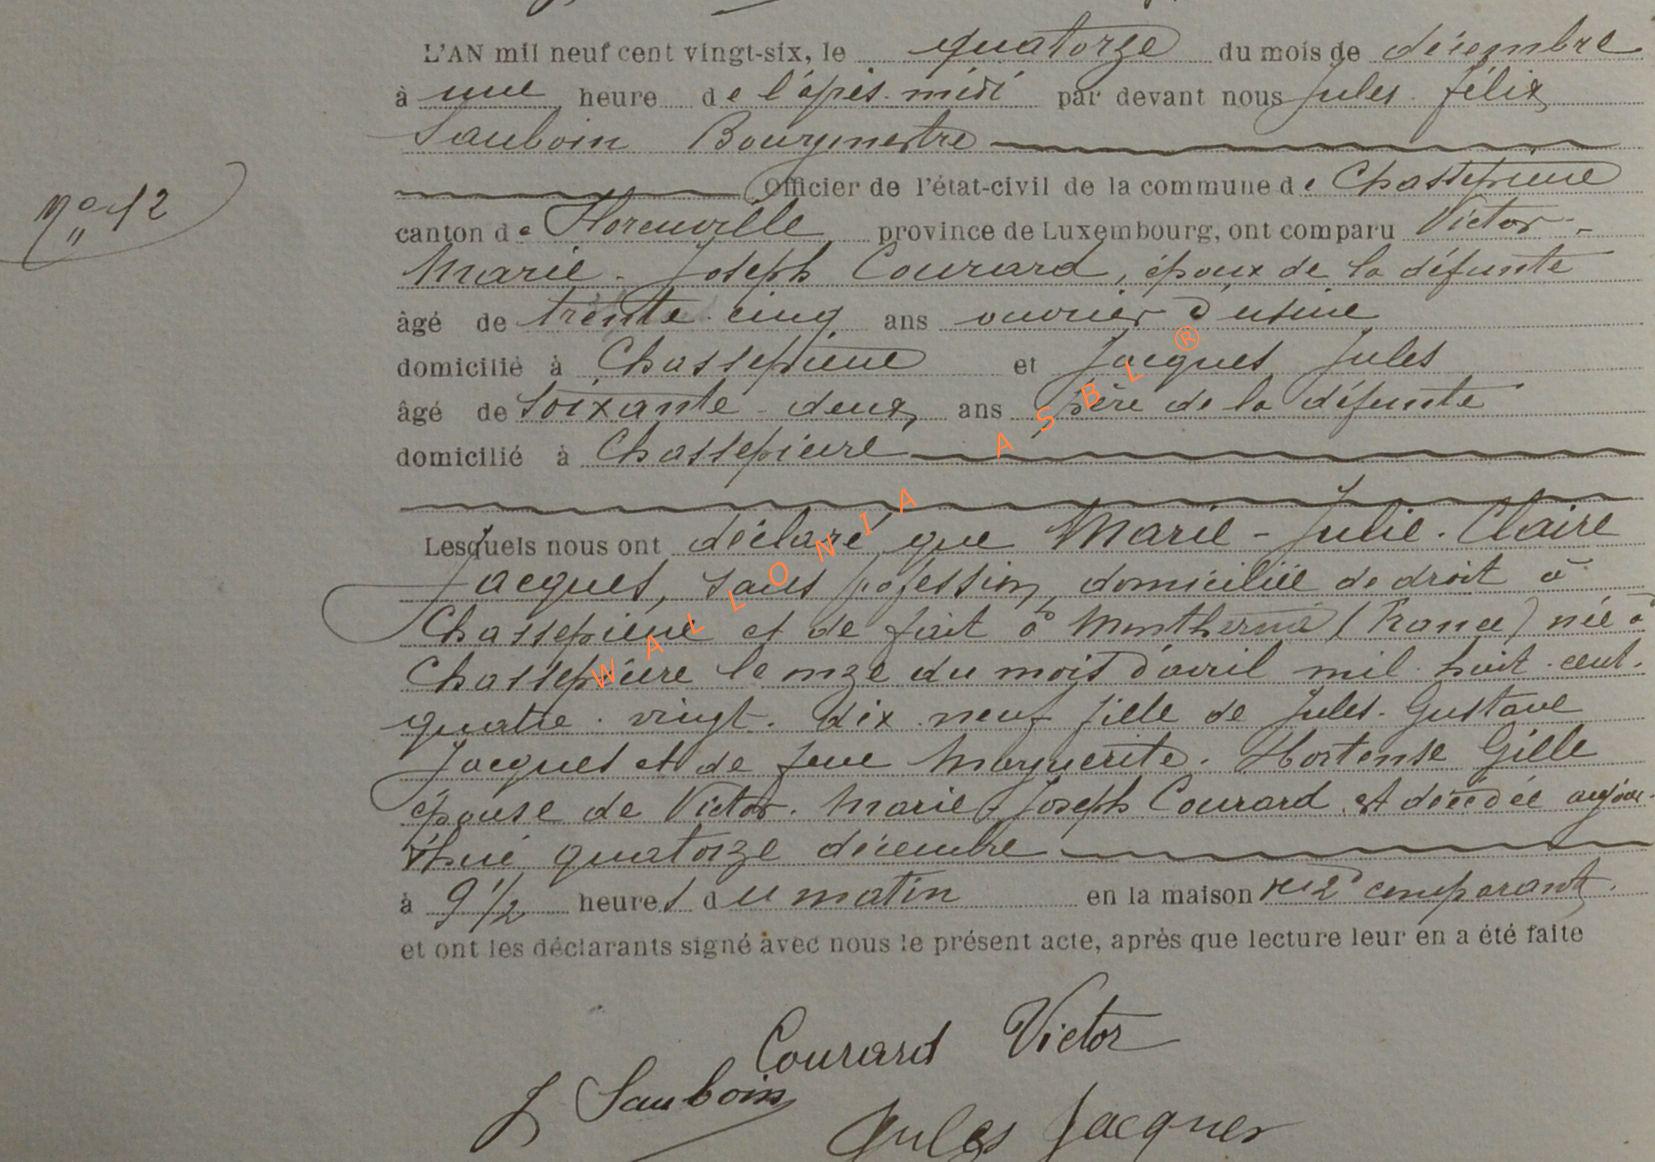 L'AN mil neuf cent vingt-six, le quatorze du mois de décembre
à une heure de l'après-midi par devant nous Jules Félix
Sauboin Bourgmestre
Officier de l'état-civil de la commune de Chassepierre
N° 12
canton de Florenville province de Luxembourg, ont comparu Victor-
Marie-Joseph Courard, époux de la défunte
âgé de trente-cinq ans ouvrier d'usine
domicilié à Chassepierre et Jacques Jules
âgé de soixante-deux ans père de la défunte
domicilié à Chassepierre
Lesquels nous ont déclaré que Marie-Julie-Claire
Jacques, sans profession, domiciliée de droit à
Chassepierre et de fait à Monthermé (France) née à
Chassepierre le onze du mois d'avril mil huit cent
quatre-vingt-dix-neuf fille de Jules-Gustave
Jacques et de feue Marguerite-Hortense Gille
épouse de Victor-Marie-Joseph Courard, est décédée aujour-
d'hui quatorze décembre
à 9 1/2 heures du matin en la maison 2d comparant
et ont les déclarants signé avec nous le présent acte, après que lecture leur en a été faite
Courard Victor
J Sauboin
Jules Jacques
WALLONIA ASBL ®